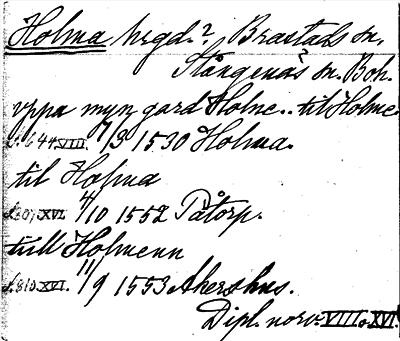 Holma hrgd.? Brastads sn,
Stångenäs sn. Boh.
uppa myn gard Holme.. til Holme.
s. 644.VIII. 7/3 1530 Holma.
til Holma
s.807.XVI. 4/10 1552 Påtorp.
till Holmenn
s.810.XVI. 11/9 1553 Akershus.
Dipl. norv. VIII o. XVI.